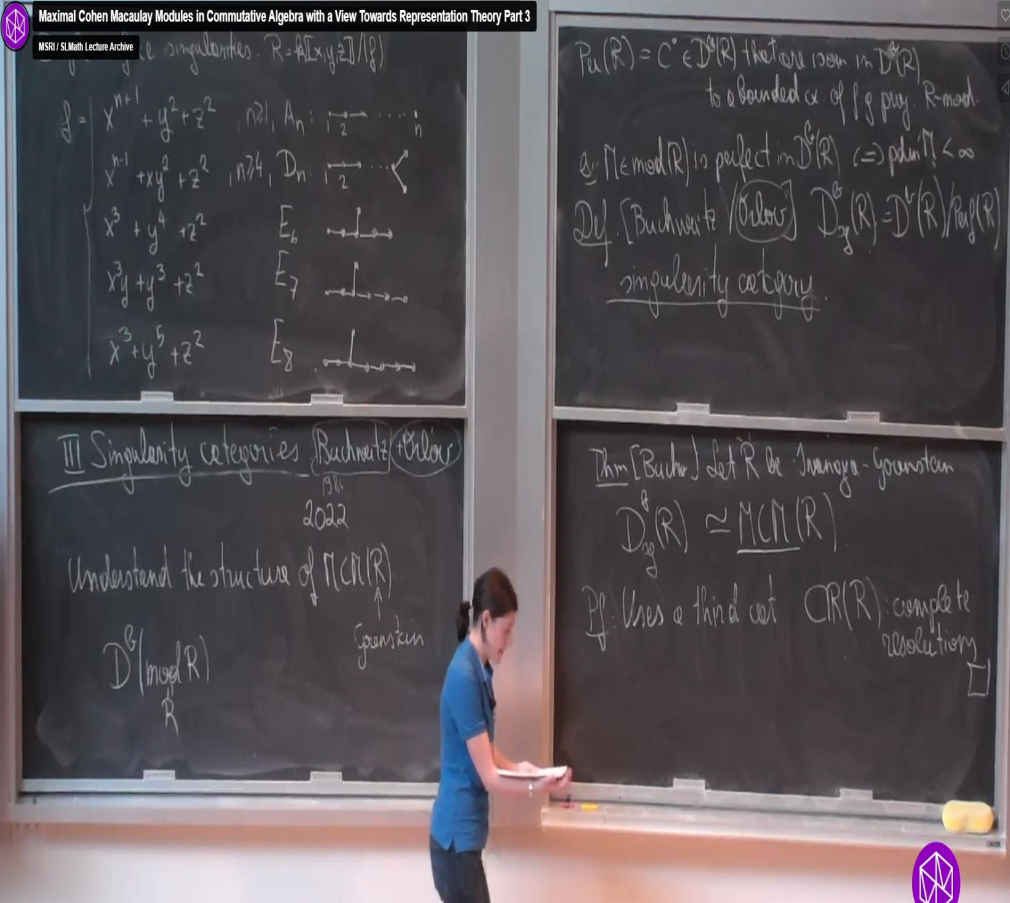 Maximal Cohen Macaulay Modules in Commutative Algebra with a View Towards Representation Theory Part 3
MSRI / SLMath Lecture Archive
singularities. R=k[[x,y,z]]/(f)
f =
x^{n+1} + y^2 + z^2 , n≥1, A_n: 1 2 ..... n
x^{n-1} + xy^2 + z^2 , n≥4, D_n: 1 2 ...
x^3 + y^4 + z^2 E_6
x^3y + y^3 + z^2 E_7
x^3 + y^5 + z^2 E_8
III Singularity categories (Buchweitz + Orlov)
2022
Understand the structure of MCM(R)
↑
Gorenstein
D^b(mod R)
R
(R) = C^• ∈ D^b(R) that are isom in D^b(R)
to a bounded cx. of f g proj. R-mod.
M ∈ mod(R) is perfect in D^b(R) (=) pdim M < ∞
Def. [Buchweitz / Orlov] D^b_{sg}(R) = D^b(R)/Perf(R)
singularity category.
Thm [Buchw.] Let R be Iwanaga-Gorenstein
D^b_{sg}(R) ≃ MCM(R)
Pf: Uses a third cat CR(R): complete
resolutions